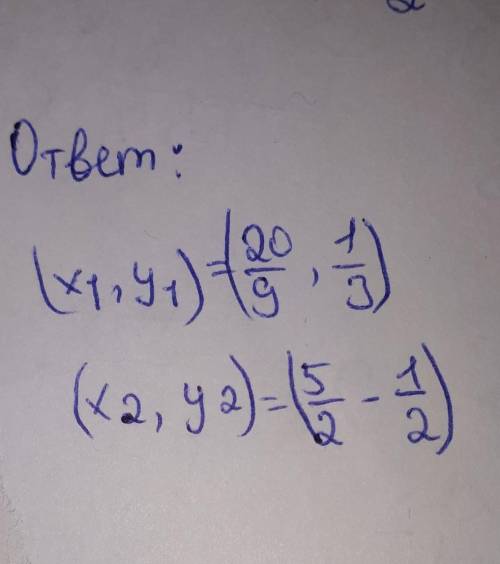 Ответ:
(x1, y1) = (20/9, 1/3)
(x2, y2) = (5/2 - 1/2)